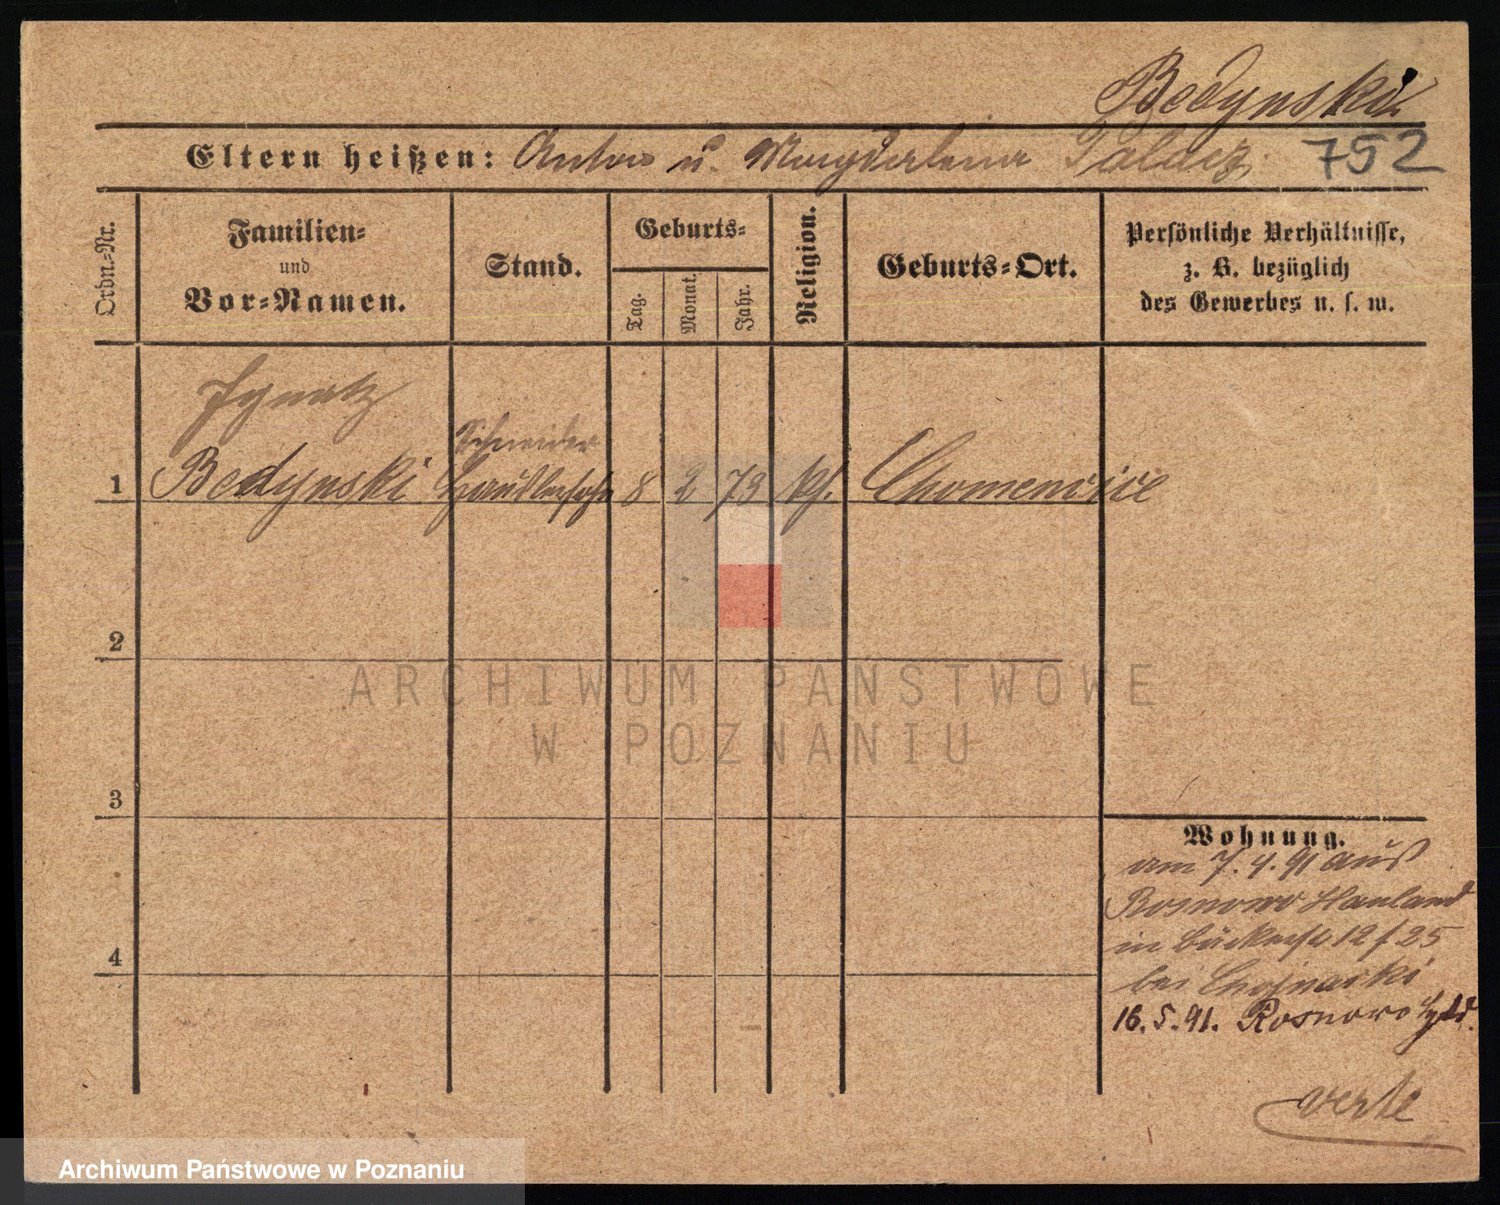 Bedynski
752
Eltern heißen: Anton u. Magdalena Talacz
Ordn.-Nr.
Familien-
und
Vor-Namen.
Stand.
Geburts-
Tag.
Monat.
Jahr.
Religion.
Geburts-Ort.
Persönliche Verhältnisse,
z. B. bezüglich
des Gewerbes u. s. w.
Ignatz
Schneider
1 Bedynski 8 2 73 kth. Chomencice
2
3
4
Wohnung.
am 7.4.91 aus
Rosnowo Hauland
in 12/25
bei
16.5.91. Rosnowo Hpld.
verte
ARCHIWUM PAŃSTWOWE
W POZNANIU
Archiwum Państwowe w Poznaniu